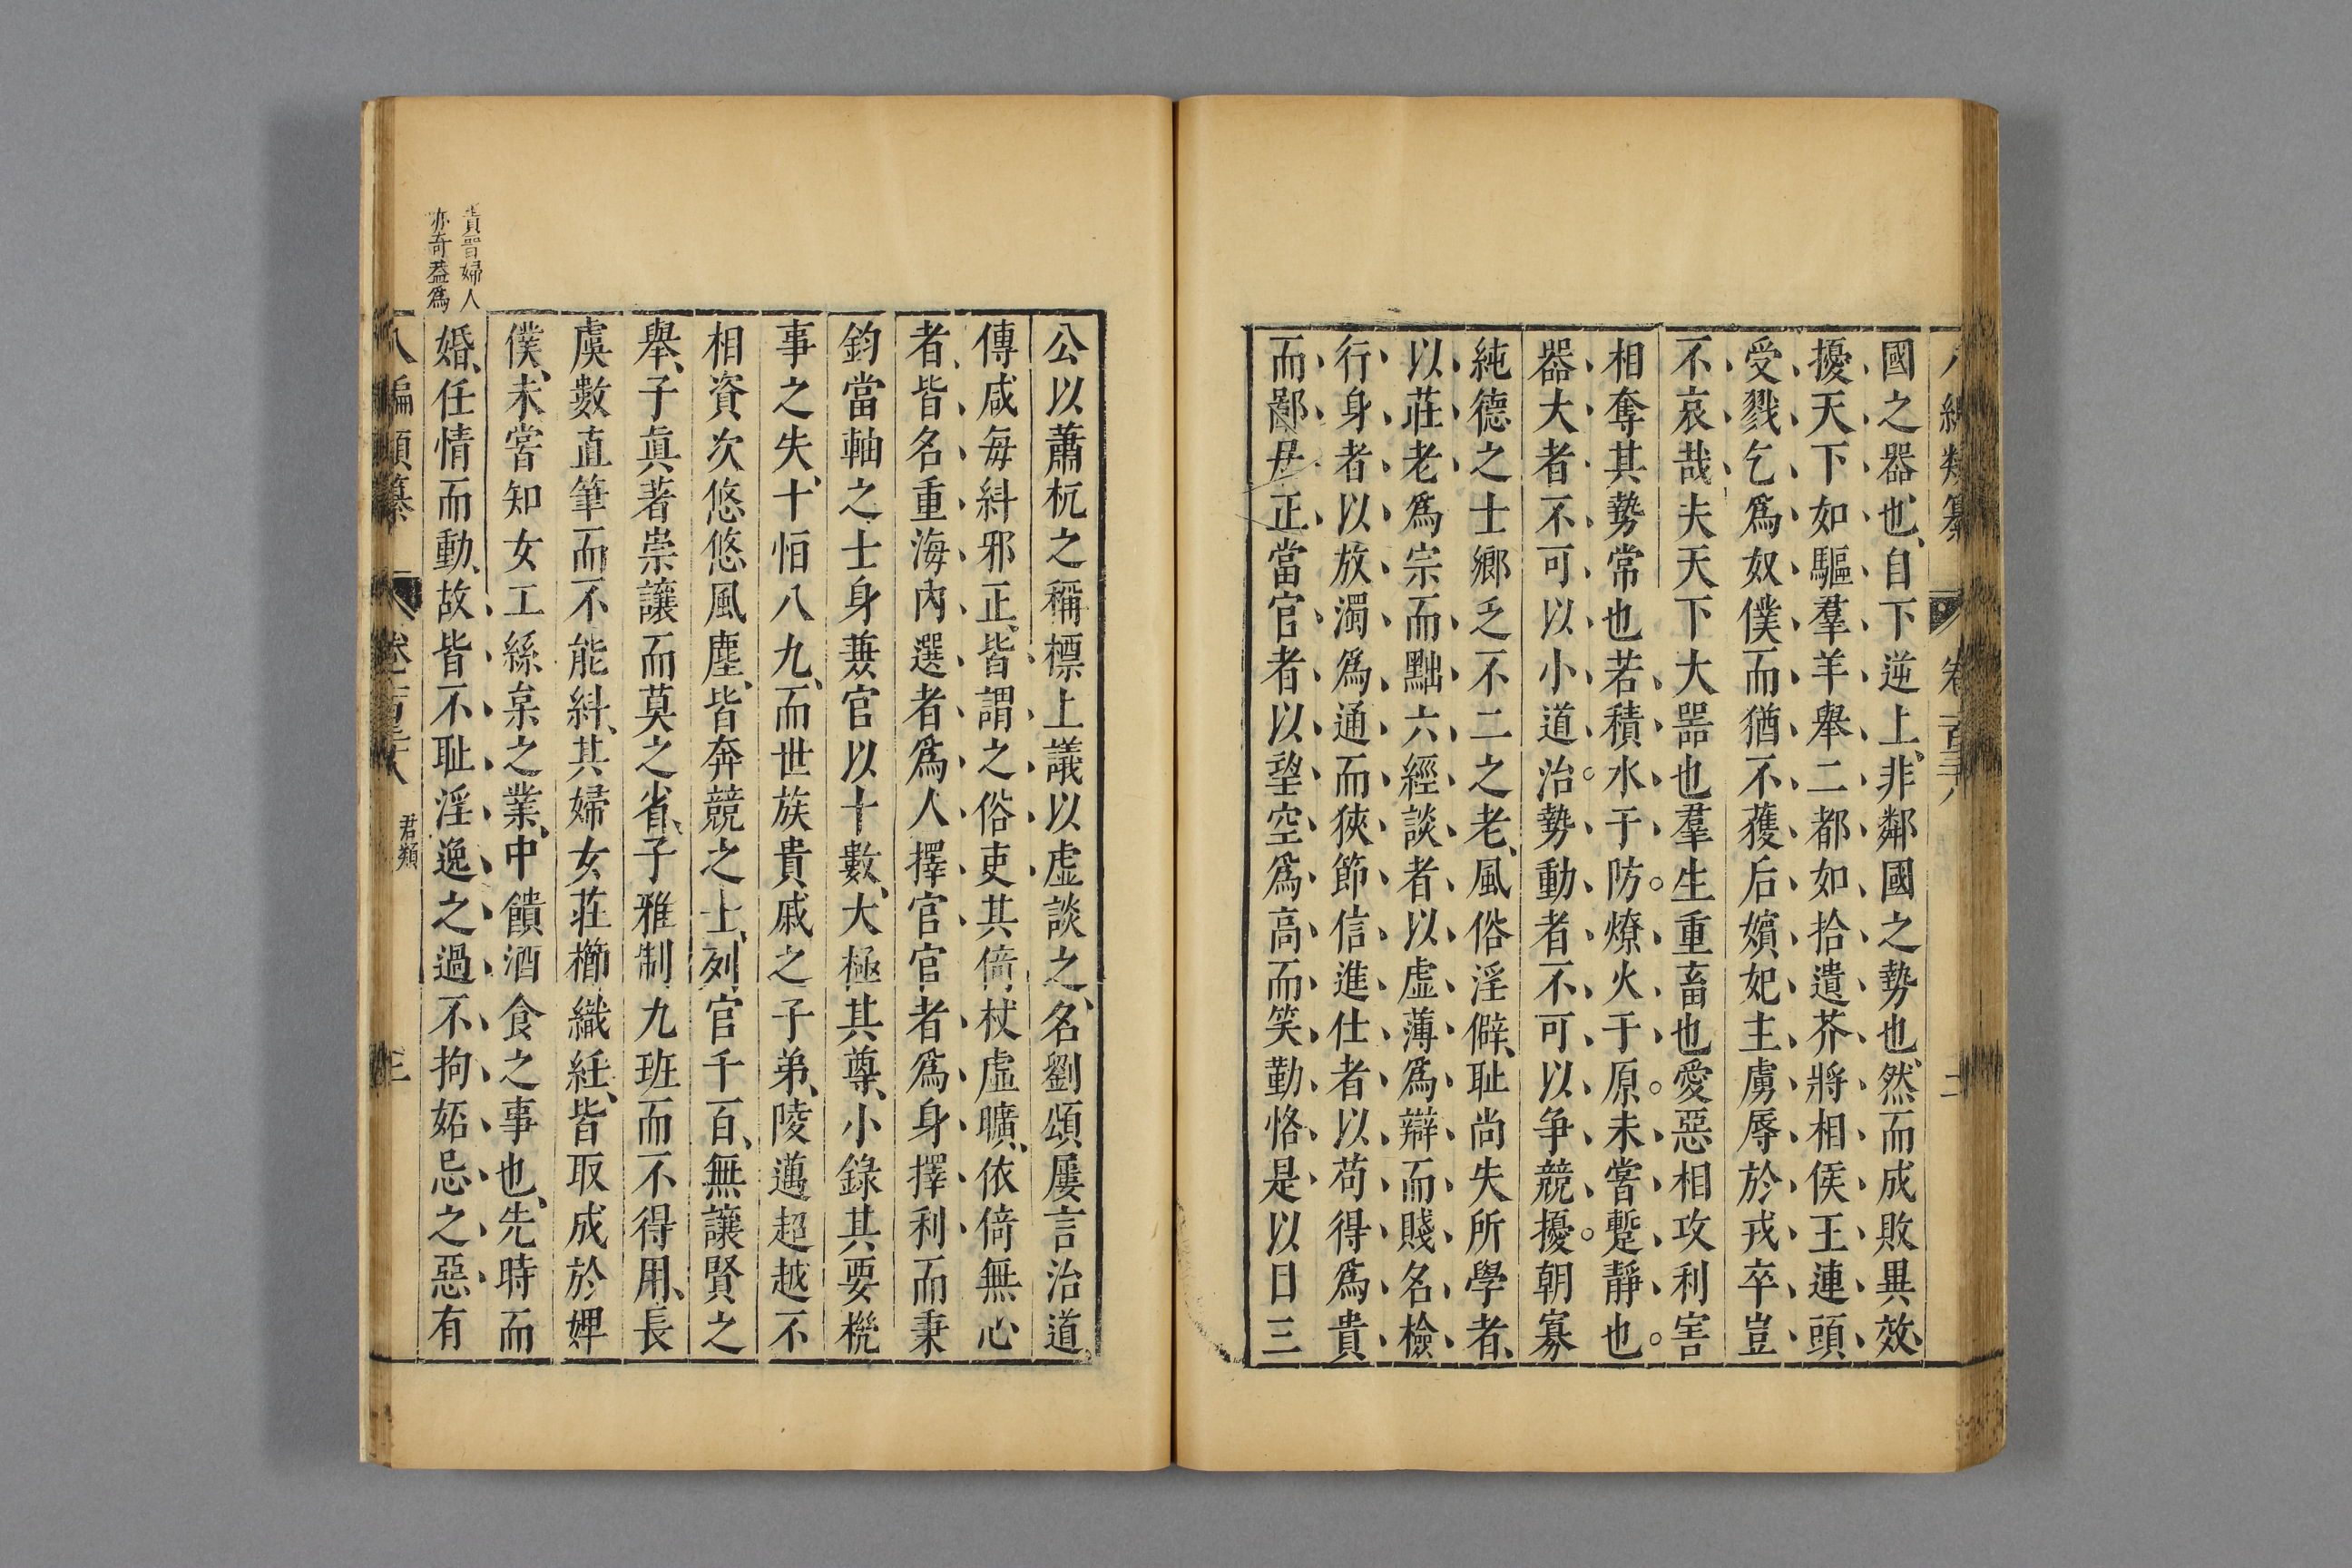 國之器也、自下逆上、非鄰國之勢也、然而成敗異效、
擾天下如驅羣羊舉二都如拾遺芥將相侯王連頭
受戮乞爲奴僕而猶不獲后嬪妃主虜辱於戎卒豈
不哀哉夫天下大器也羣生重畜也愛惡相攻利害
相奪其勢常也若積水于防。燎火于原。未嘗蹔靜也。
器大者不可以小道治。勢動者不可以爭競擾。朝寡
純德之士鄉乏不二之老、風俗淫僻、耻尚失所學者、
以莊老爲宗而黜六經談者以虛薄爲辯而賤名檢
行身者以放濁爲通而狹節信進仕者以苟得爲貴
而鄙居正當官者以望空爲高而笑勤恪是以日三
公以蕭杌之稱標上議以虛談之、名劉頌屢言治道、
傅咸每糾邪正、皆謂之俗吏其倚杖虛曠、依倚無心
者、皆名重海內選者爲人擇官官者爲身擇利而秉
鈞當軸之士身兼官以十數、大極其尊、小錄其要機
事之失、十恒八九、而世族貴戚之子弟、陵邁超越不
相資次悠悠風塵、皆奔競之士、列官千百、無讓賢之
舉、子真著崇讓而莫之省、子雅制九班而不得用、長
虞數直筆而不能糾、其婦女莊櫛織絍、皆取成於婢
僕、未嘗知女工絲枲之業、中饋酒食之事也、先時而
婚、任情而動、故皆不耻淫逸之過不拘妬忌之惡有
責晉婦人
亦奇葢爲
八編類纂 卷一百三十八 君類 三